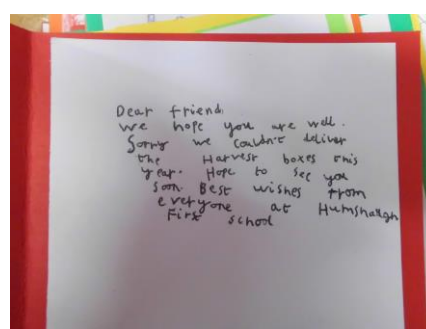 Dear friend,
we hope you are well.
Sorry we couldn't deliver
the Harvest boxes this
year. Hope to see you
soon. Best wishes from
everyone at Humshaugh
First school